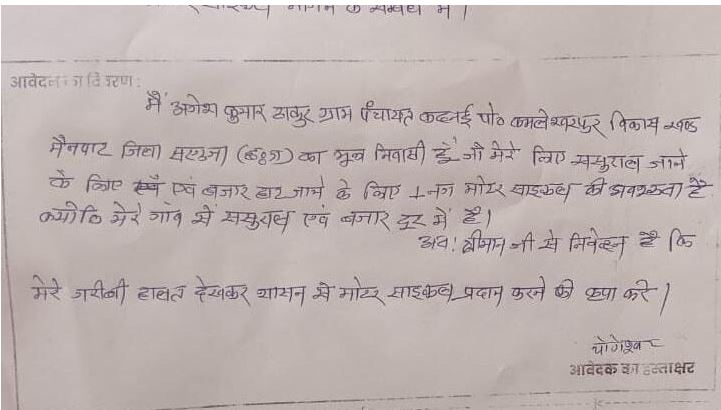 के सम्बंध में।
आवेदन का विवरण:
मैं अगेश कुमार ठाकुर ग्राम पंचायत कदनई पो० कमलेश्वरपुर विकास खण्ड
मैनपाट जिला सरगुजा (छ०ग) का मूल निवासी हूँ जो मेरे लिए ससुराल जाने
के लिए एवं बजार हाट जाने के लिए 1 नग मोटर साइकल की अवश्यकता है
क्योकि मेरे गांव से ससुराल एवं बजार दूर में है।
अतः श्रीमान जी से निवेदन है कि
मेरे गरीबी हालत देखकर शासन से मोटर साइकल प्रदान करने की कृपा करे।
योगेश्वर
आवेदक का हस्ताक्षर